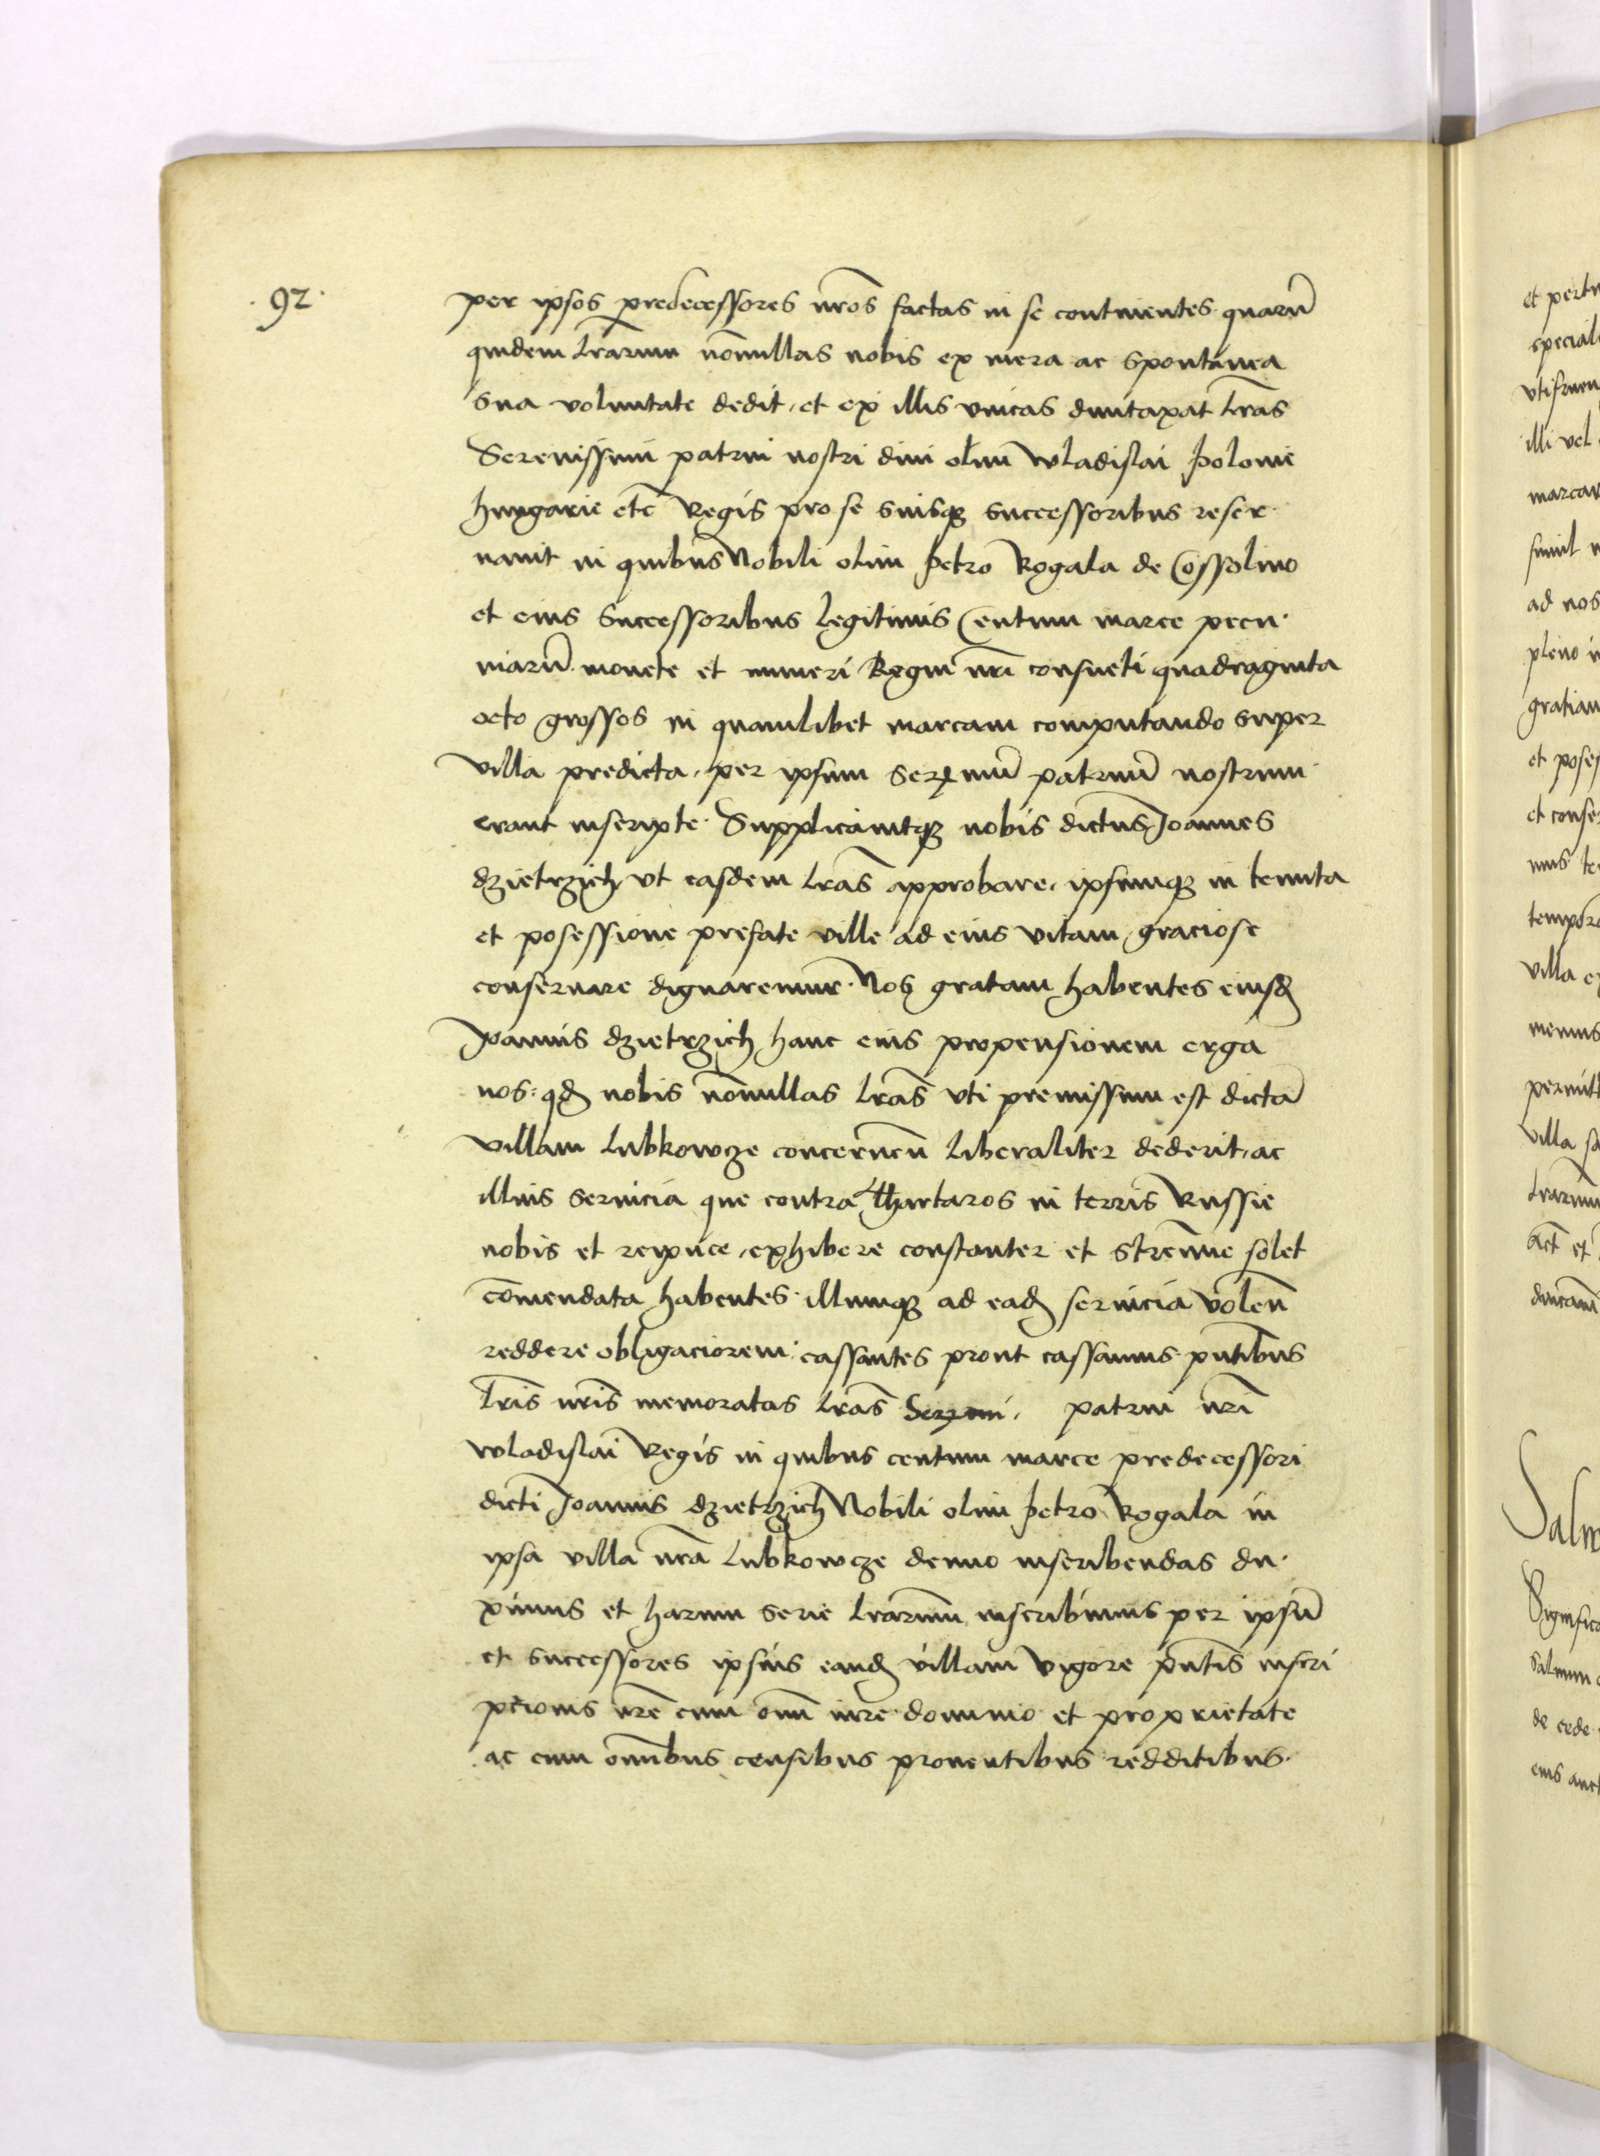 ·92·
per ipsos predecessores nr̃os factas in se continentes quarũ
quidem lr̃arum nõnullas nobis ex mera ac spontanea
sua voluntate dedit, et ex illis vnicas duntaxat lr̃as
Serenissimi patrui nostri diui olim wladislai Polonie
hungarie etc̃ Regis pro se suisqꝫ successoribus reser
uauit in quibus Nobili olim Petro Rogala de Cossolino
et eius successoribus legitimis Centum marce pecu·
niarũ monete et numeri Regni nr̃i consueti quadraginta
octo grossos in quamlibet marcam computando super
villa predicta, per ipsum serẽmũ patruũ nostrum
erant inscripte· Supplicauitqꝫ nobis dictus Joannes
dzietrzich vt easdem lr̃as approbare, ipsumqꝫ in tenuta
et posessione prefate ville ad eius vitam graciose
conseruare dignaremur· Nos gratam habentes eiusđ
Joannis dzietrzich hanc eius propensionem erga
nos: qđ nobis nõnullas lr̃as vti premissum est dictã
villam Lubkowcze concerneñ liberaliter dederit, ac
illius seruicia que contra Thartaros in terris Russie
nobis et reipu̅ce, exhibere constanter et strennue solet
cõmendata habentes· illumqꝫ ad eađ seruicia voleñ
reddere obligaciorem: cassantes prout cassamus pñtibus
lr̃is nr̃is memoratas lr̃as Serẽmi, patrui nr̃i
wladislai Regis in quibus centum marce predecessori
dicti Joannis dzietrzich Nobili olim Petro Rogala in
ipsa villa nr̃a Lubkowcze denuo inscribendas du·
ximus et harum serie lr̃arum inscribimus per ipsũ
et successores ipsius eanđ villam vigore pñtis inscri
pcionis nr̃e cum om̃i iure dominio et proprietate
ac cum om̃ibus censibus prouentibus redditibus·